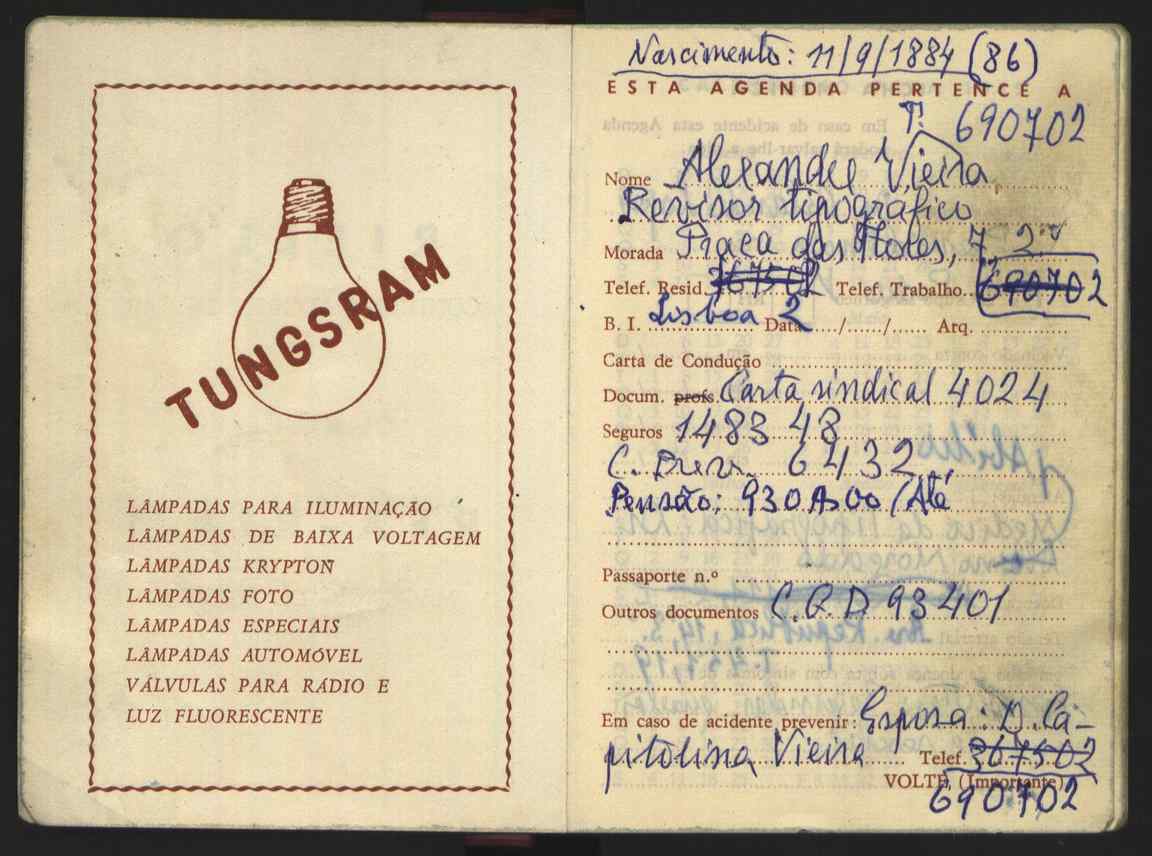 TUNGSRAM
LÂMPADAS PARA ILUMINAÇÃO
LÂMPADAS DE BAIXA VOLTAGEM
LÂMPADAS KRYPTON
LÂMPADAS FOTO
LÂMPADAS ESPECIAIS
LÂMPADAS AUTOMÓVEL
VÁLVULAS PARA RÁDIO E
LUZ FLUORESCENTE
Nascimento: 11/9/1884 (86)
ESTA AGENDA PERTENCE A
T. 690702
Nome Alexandre Vieira
Revisor tipográfico
Morada Praça das Flores, 7 2º
Telef. Resid. 367502 Telef. Trabalho. 690702
B. I. Lisboa 2 Data ..../....../...... Arq.
Carta de Condução
Docum. profs. Carta sindical 4024
Seguros 1483 48
C. Prev. 6432
Pensão: 930$00 (Até
Passaporte n.º
Outros documentos C.G.D. 93401
Em caso de acidente prevenir: Esposa: D. Ca-
pitolina Vieira Telef. 367502
VOLTE, (Importante)
690702